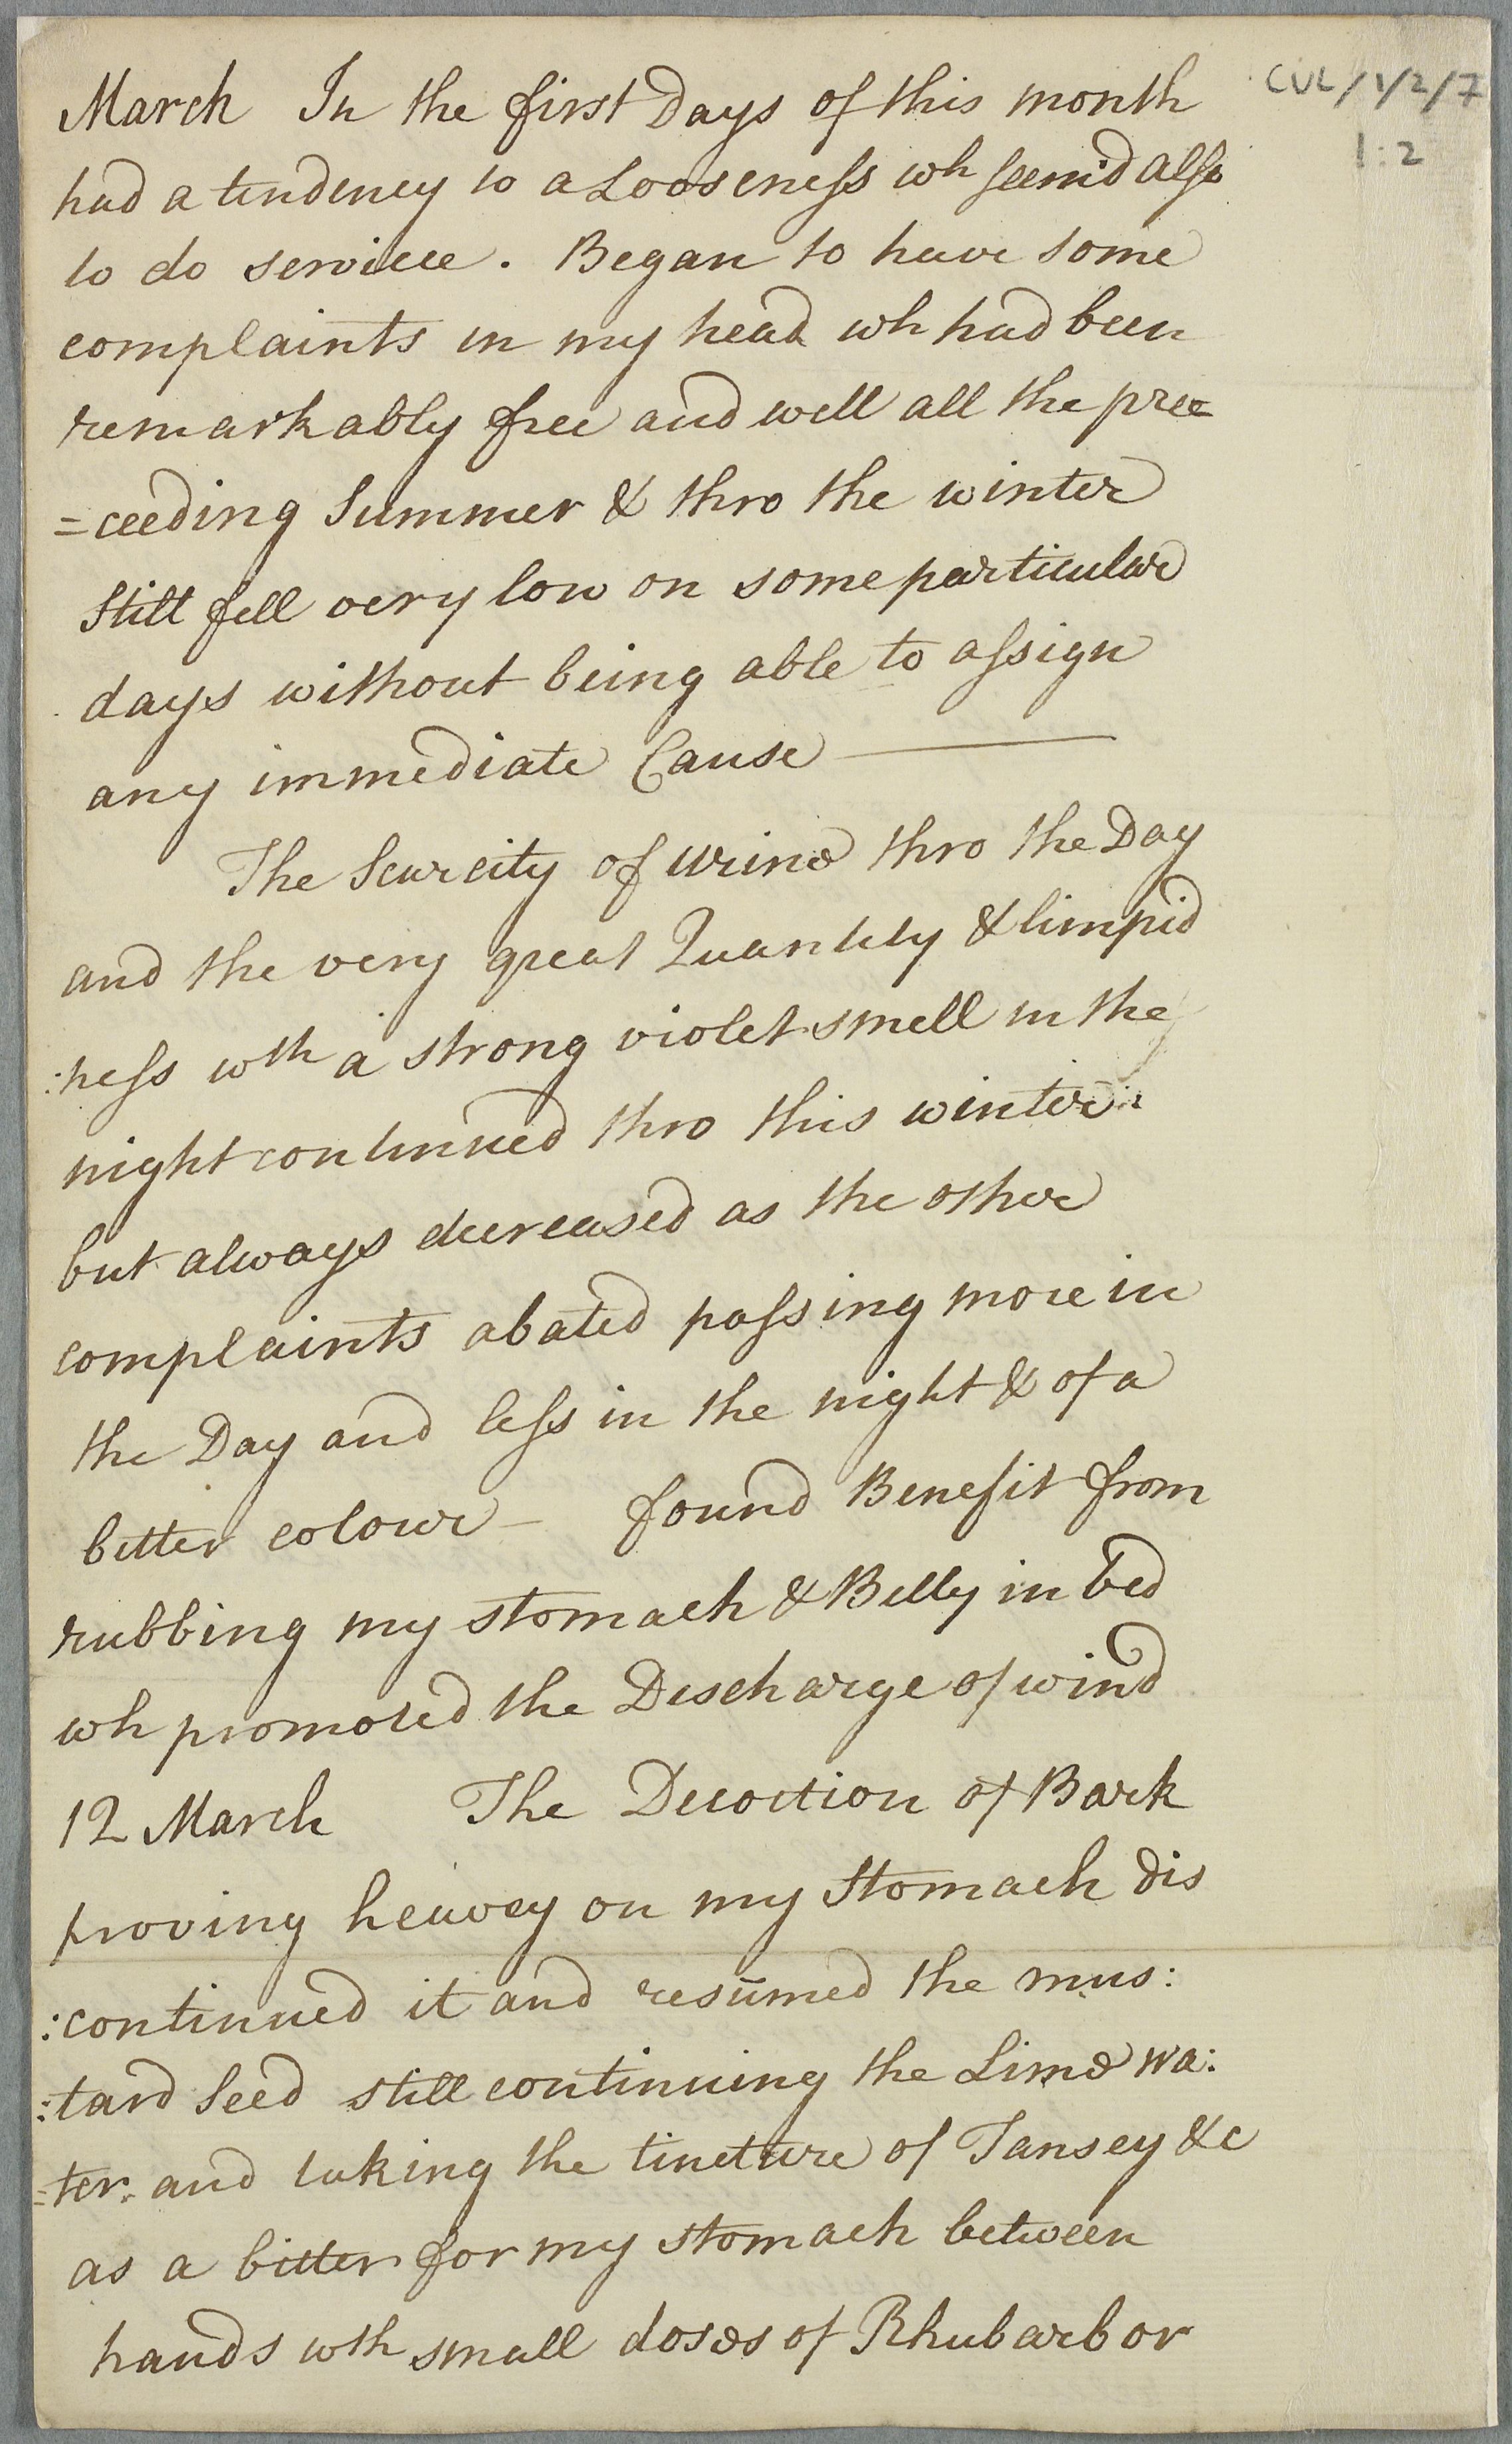 CUL/1/2/7
1:2
March In the first Days of this month
had a tendency to a Looseness wh seem'd also
to do service. Began to have some
complaints in my head wh had been
remarkably free and well all the pre
=ceeding Summer & thro the winter
Still fell very low on some particular
days without being able to assign
any immediate Cause —
The Scarcity of Urine thro the Day
and the very great Quantity & limpid
:ness wth a strong violet smell in the
night continued thro this winter
but always decreased as the other
complaints abated passing more in
the Day and less in the night & of a
better colour — found Benefit from
rubbing my stomach & Belly in bed
wh promoted the Discharge of wind
12 March The Decoction of Bark
proving heavey on my Stomach dis
:continued it and resumed the mus:
:tard Seed still continuing the Lime wa:
=ter. and taking the tincture of Tansey &c
as a bitter for my stomach between
hands wth small doses of Rhubarb or